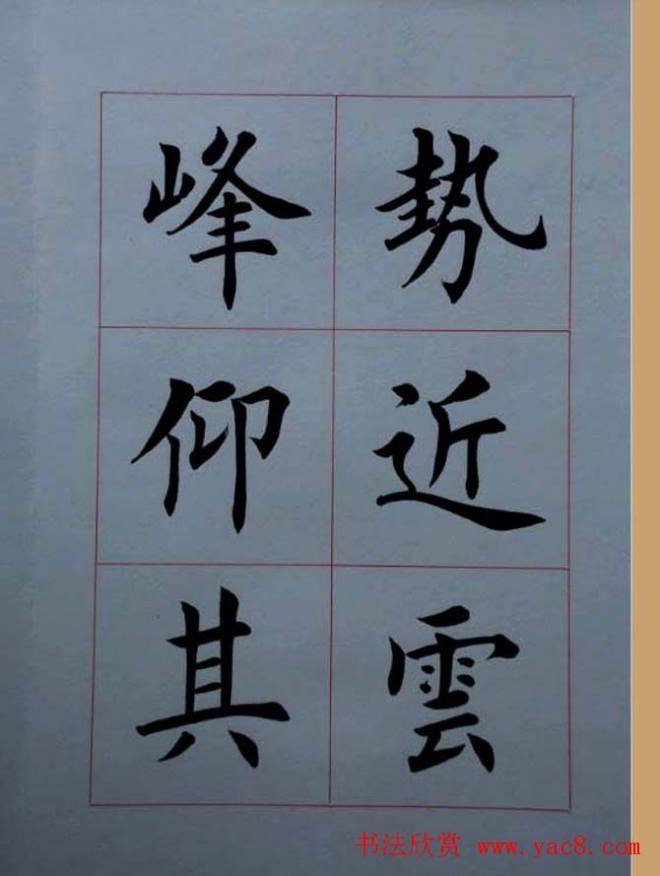 勢近雲
峰仰其
书法欣赏 www.yac8.com